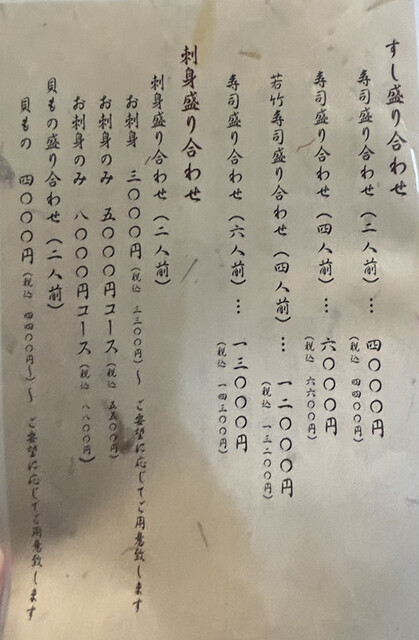 すし盛り合わせ
寿司盛り合わせ（二人前）… 四〇〇〇円
（税込 四四〇〇円）
寿司盛り合わせ（四人前）… 六〇〇〇円
（税込 六六〇〇円）
若竹寿司盛り合わせ（四人前）… 一二〇〇〇円
（税込 一三二〇〇円）
寿司盛り合わせ（六人前）… 一三〇〇〇円
（税込 一四三〇〇円）
刺身盛り合わせ
刺身盛り合わせ（二人前）
お刺身 三〇〇〇円（税込 三三〇〇円）〜 ご要望に応じてご用意致します
お刺身のみ 五〇〇〇円コース（税込 五五〇〇円）
お刺身のみ 八〇〇〇円コース（税込 八八〇〇円）
貝もの盛り合わせ（二人前）
貝もの 四〇〇〇円（税込 四四〇〇円〜）〜 ご要望に応じてご用意致します